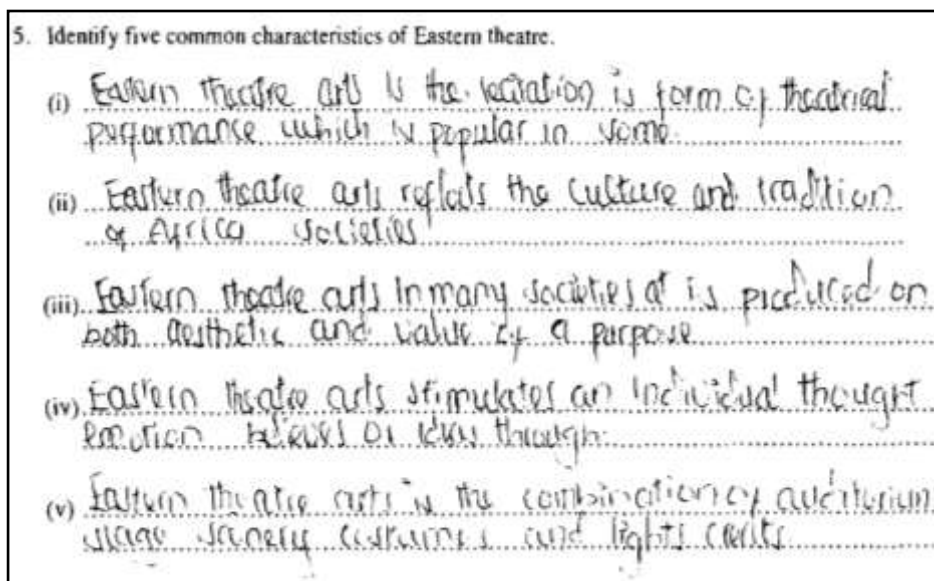 5. Identify five common characteristics of Eastern theatre.
(i) Eastern theatre arts is the recitation is form of theatrical
performance which is popular in some.
(ii) Eastern theatre arts reflects the culture and tradition
of Africa societies
(iii) Eastern theatre arts in many societies it is produced on
both aesthetic and value of a purpose
(iv) Eastern theatre arts stimulates an individual thought
emotion believes or through
(v) Eastern theatre arts is the combination of auditorium
stage scenery costumes and lights